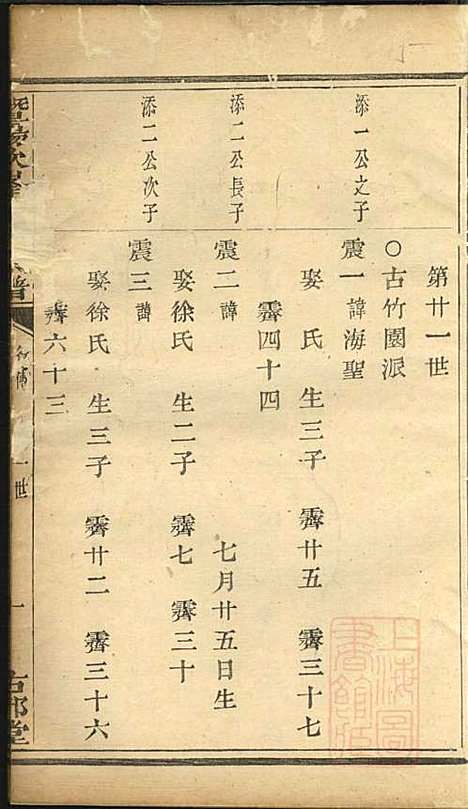 第廿一世
○古竹園派
添一公之子
震一 諱海聖
娶 氏 生三子 霽廿五 霽三十七
霽四十四
添二公長子
震二 諱 七月廿五日生
娶徐氏 生二子 霽七 霽三十
添二公次子
震三 諱
娶徐氏 生三子 霽廿二 霽三十六
霽六十三
暨陽
譜
世
一
堂
上海圖
書館藏